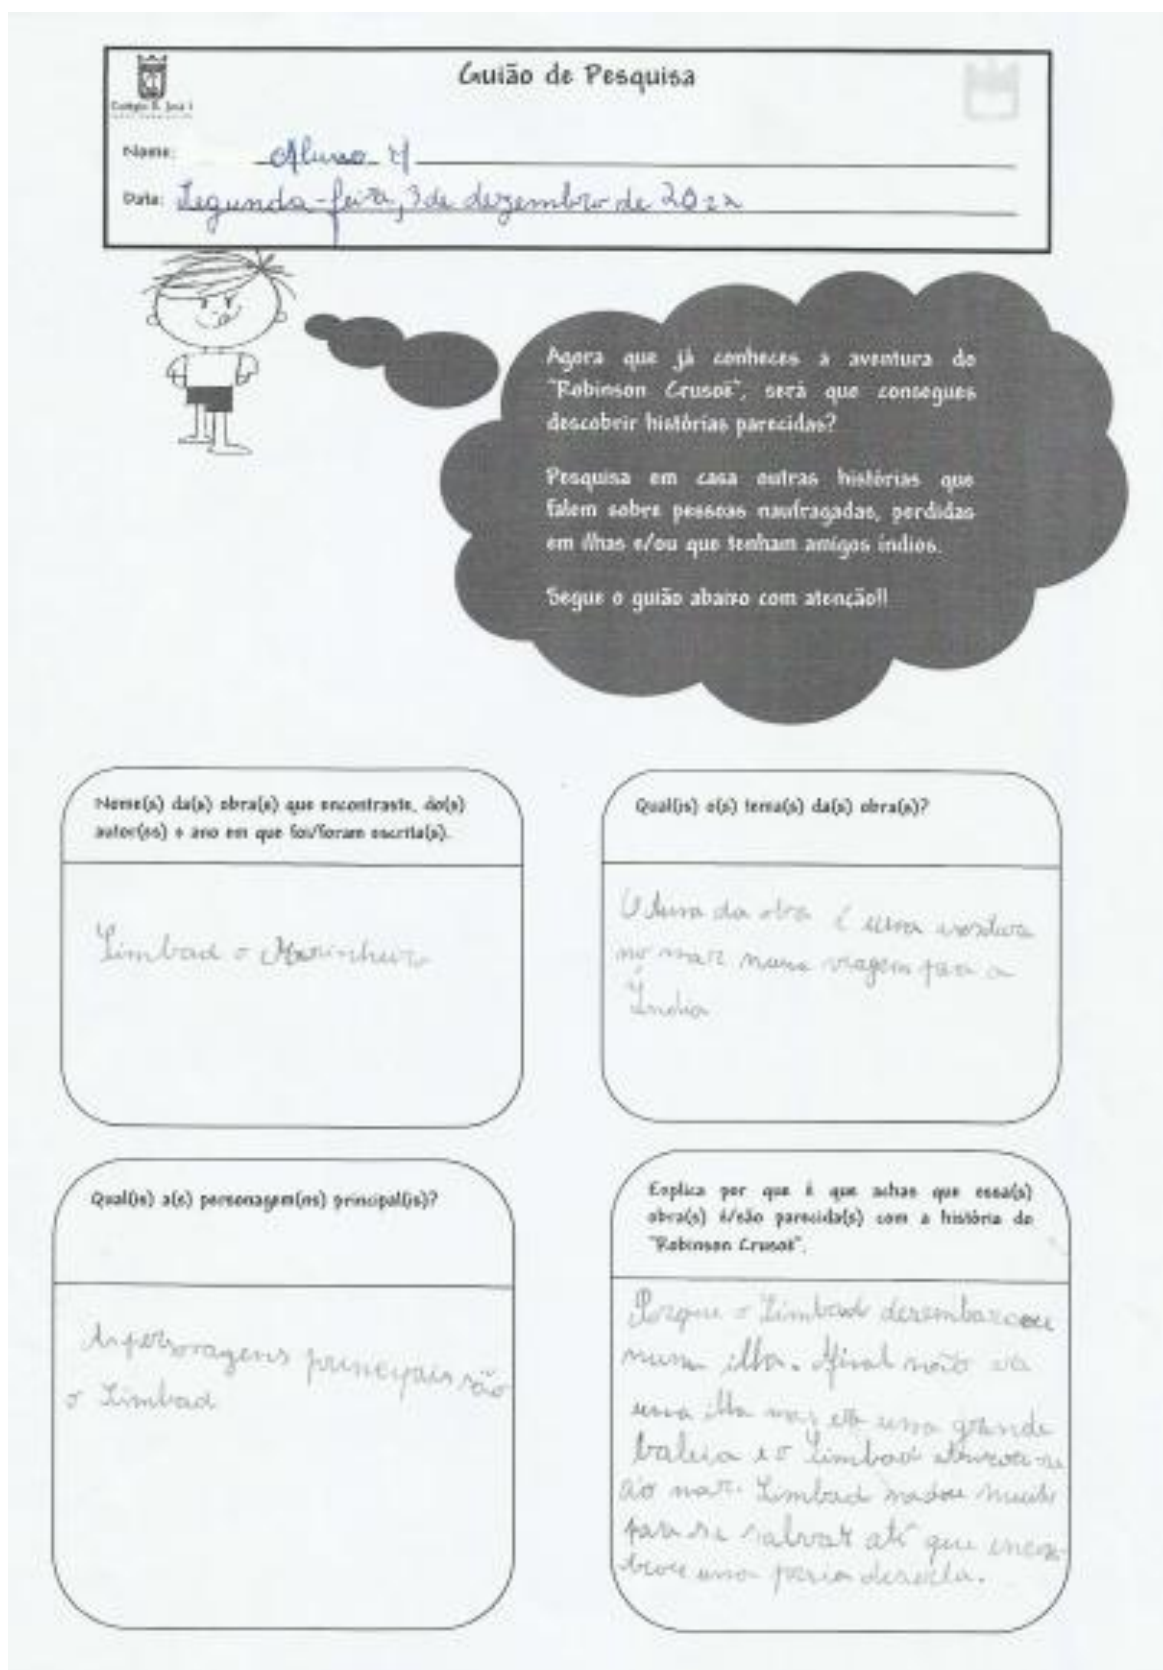 Guião de Pesquisa
Colégio D. José I
Nome: Aluno
Data: Segunda-feira, 3 de dezembro de 20
Agora que já conheces a aventura do
"Robinson Crusoë", será que consegues
descobrir histórias parecidas?
Pesquisa em casa outras histórias que
falem sobre pessoas naufragadas, perdidas
em ilhas e/ou que tenham amigos índios.
Segue o guião abaixo com atenção!!
Nome(s) da(s) obra(s) que encontraste, do(s)
autor(es) e ano em que foi/foram escrita(s).
Simbad o Marinheiro
Qual(is) o(s) tema(s) da(s) obra(s)?
O tema da obra é uma
no mar numa viagem para a
Índia
Qual(is) a(s) personagem(ns) principal(is)?
As personagens principais são
o Simbad
Explica por que é que achas que essa(s)
obra(s) é/são parecida(s) com a história do
"Robinson Crusoë".
Porque o Simbad desembarcou
numa ilha. Afinal não era
uma ilha mas era uma grande
baleia e o Simbad atirou-se
ao mar. Simbad nadou muito
para se salvar até que encon-
trou uma deserta.